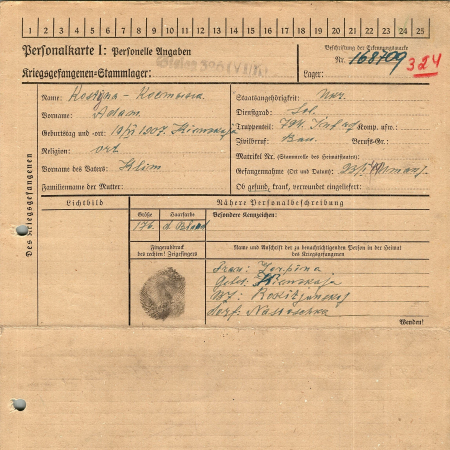 1 2 3 4 5 6 7 8 9 10 11 12 13 14 15 16 17 18 19 20 21 22 23 24 25
Personalkarte I: Personelle Angaben
Kriegsgefangenen-Stammlager:
Beschriftung der Erkennungsmarke
Nr. 168709
Lager:
324
Des Kriegsgefangenen
Name:
Vorname: Adam
Geburtstag und -ort: 1907. Kiewskaja
Religion: ort.
Vorname des Vaters: Klim
Familienname der Mutter:
Staatsangehörigkeit: Ukr.
Dienstgrad: Sol.
Truppenteil: Komp. usw.:
Zivilberuf: Bau. Berufs-Gr.:
Matrikel Nr. (Stammrolle des Heimatstaates):
Gefangennahme (Ort und Datum):
Ob gesund, krank, verwundet eingeliefert:
Lichtbild
Nähere Personalbeschreibung
Größe
Haarfarbe
Besondere Kennzeichen:
176. d. Blond
Fingerabdruck
des rechten! Zeigefingers
Name und Anschrift der zu benachrichtigenden Person in der Heimat
des Kriegsgefangenen
Frau:
Gebt: Kiewskaja
Dorf: Nastaschka
Wenden!